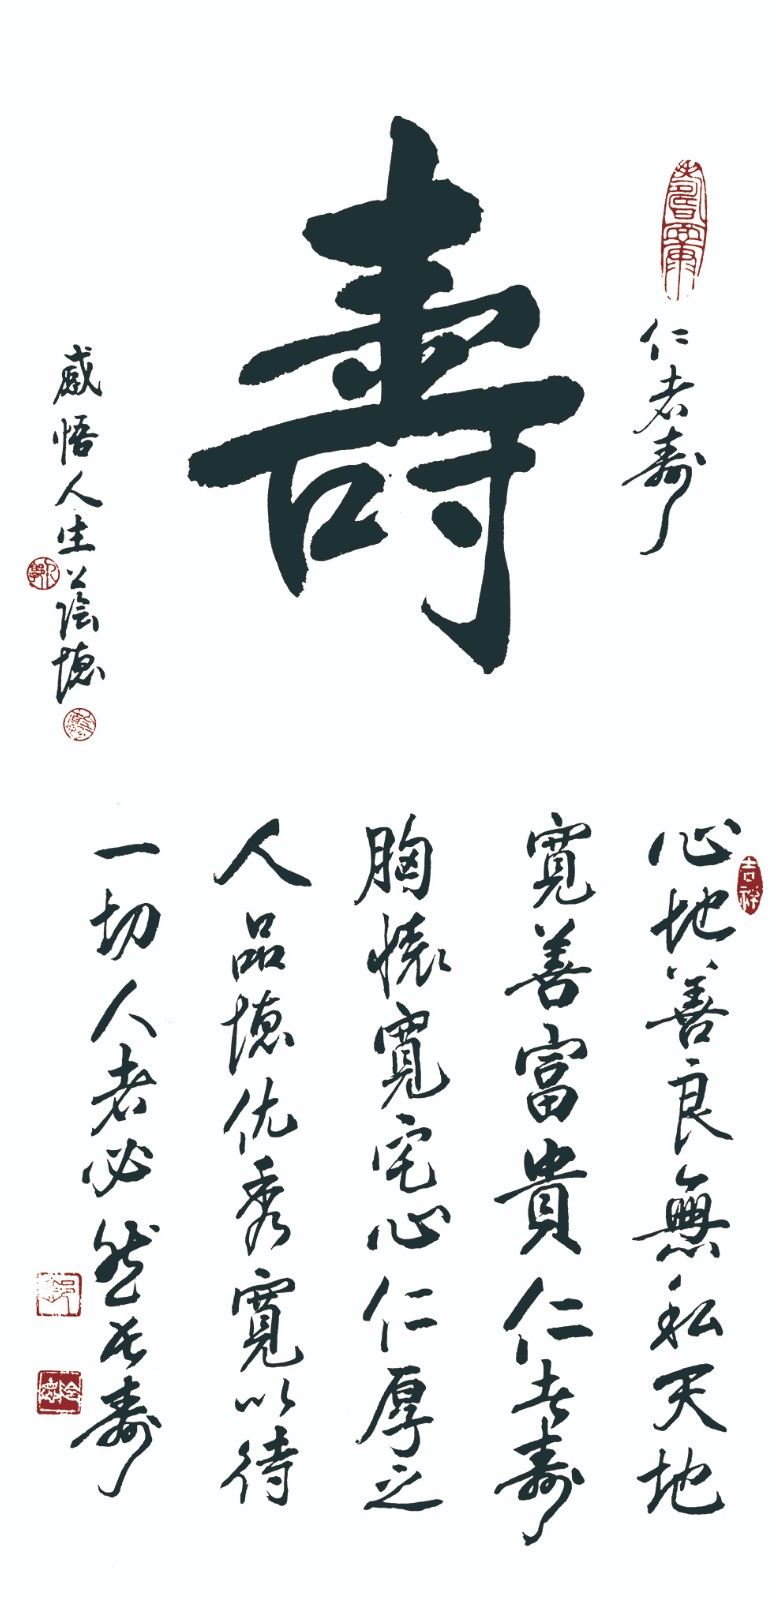 仁者壽
壽
感悟人生蔭德
吉祥
心地善良無私天地
寬善富貴仁者壽
胸懷寬宅心仁厚之
人品德优秀寬以待
一切人者必然長壽